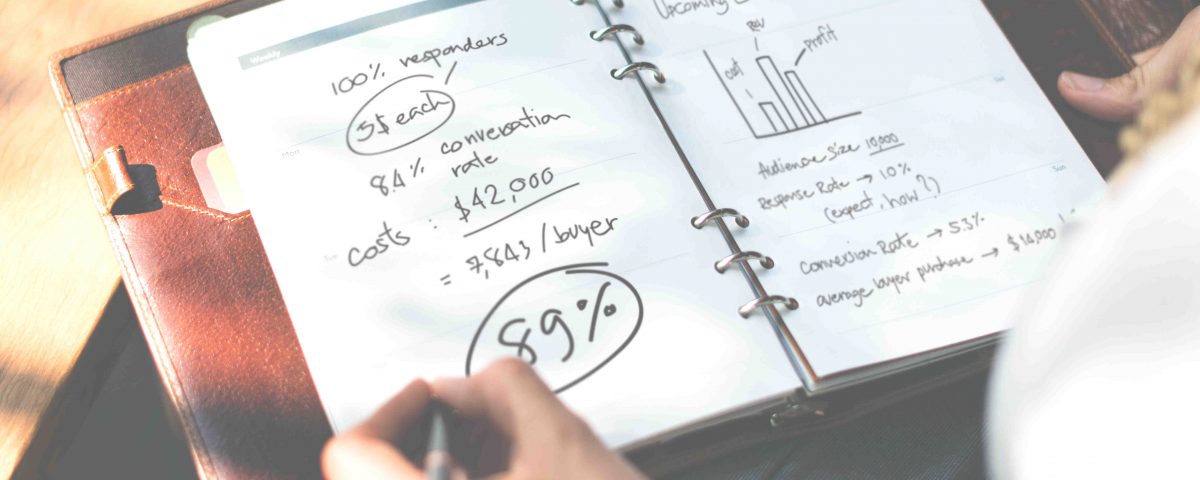 Weekly
100% responders
5$ each
8.4% conversation
rate
costs : $42,000
= 7,843 / buyer
89%
Mon
Upcoming
cost
REV
Profit
Audience Size 10,000
Response Rate → 10%
(expect, how?)
Conversion Rate → 5.3%
average buyer purchase → $14,000
Sun